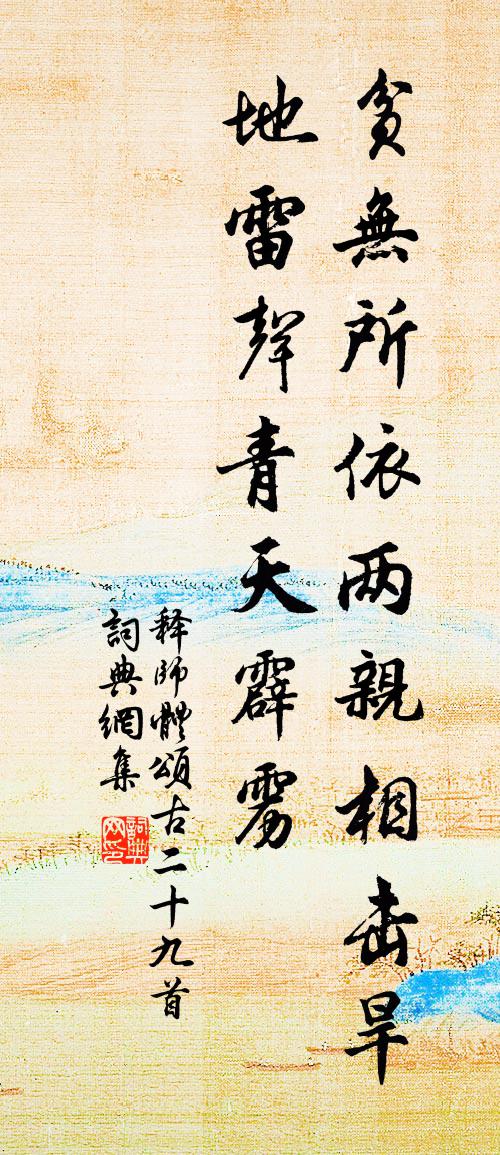 貧無所依两親相击旱
地雷聲青天霹雳
释師體頌古二十九首
詞典網集
詞典网印